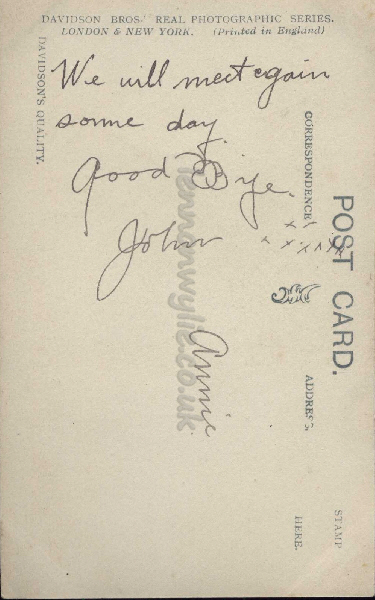 DAVIDSON BROS.' REAL PHOTOGRAPHIC SERIES.
LONDON & NEW YORK. (Printed in England)
DAVIDSON'S QUALITY.
We will meet again
some day.
Good Bye.
John
x x
x x x x x
Annie
CORRESPONDENCE
POST CARD.
ADDRESS.
STAMP
HERE.
tennanwylie.co.uk